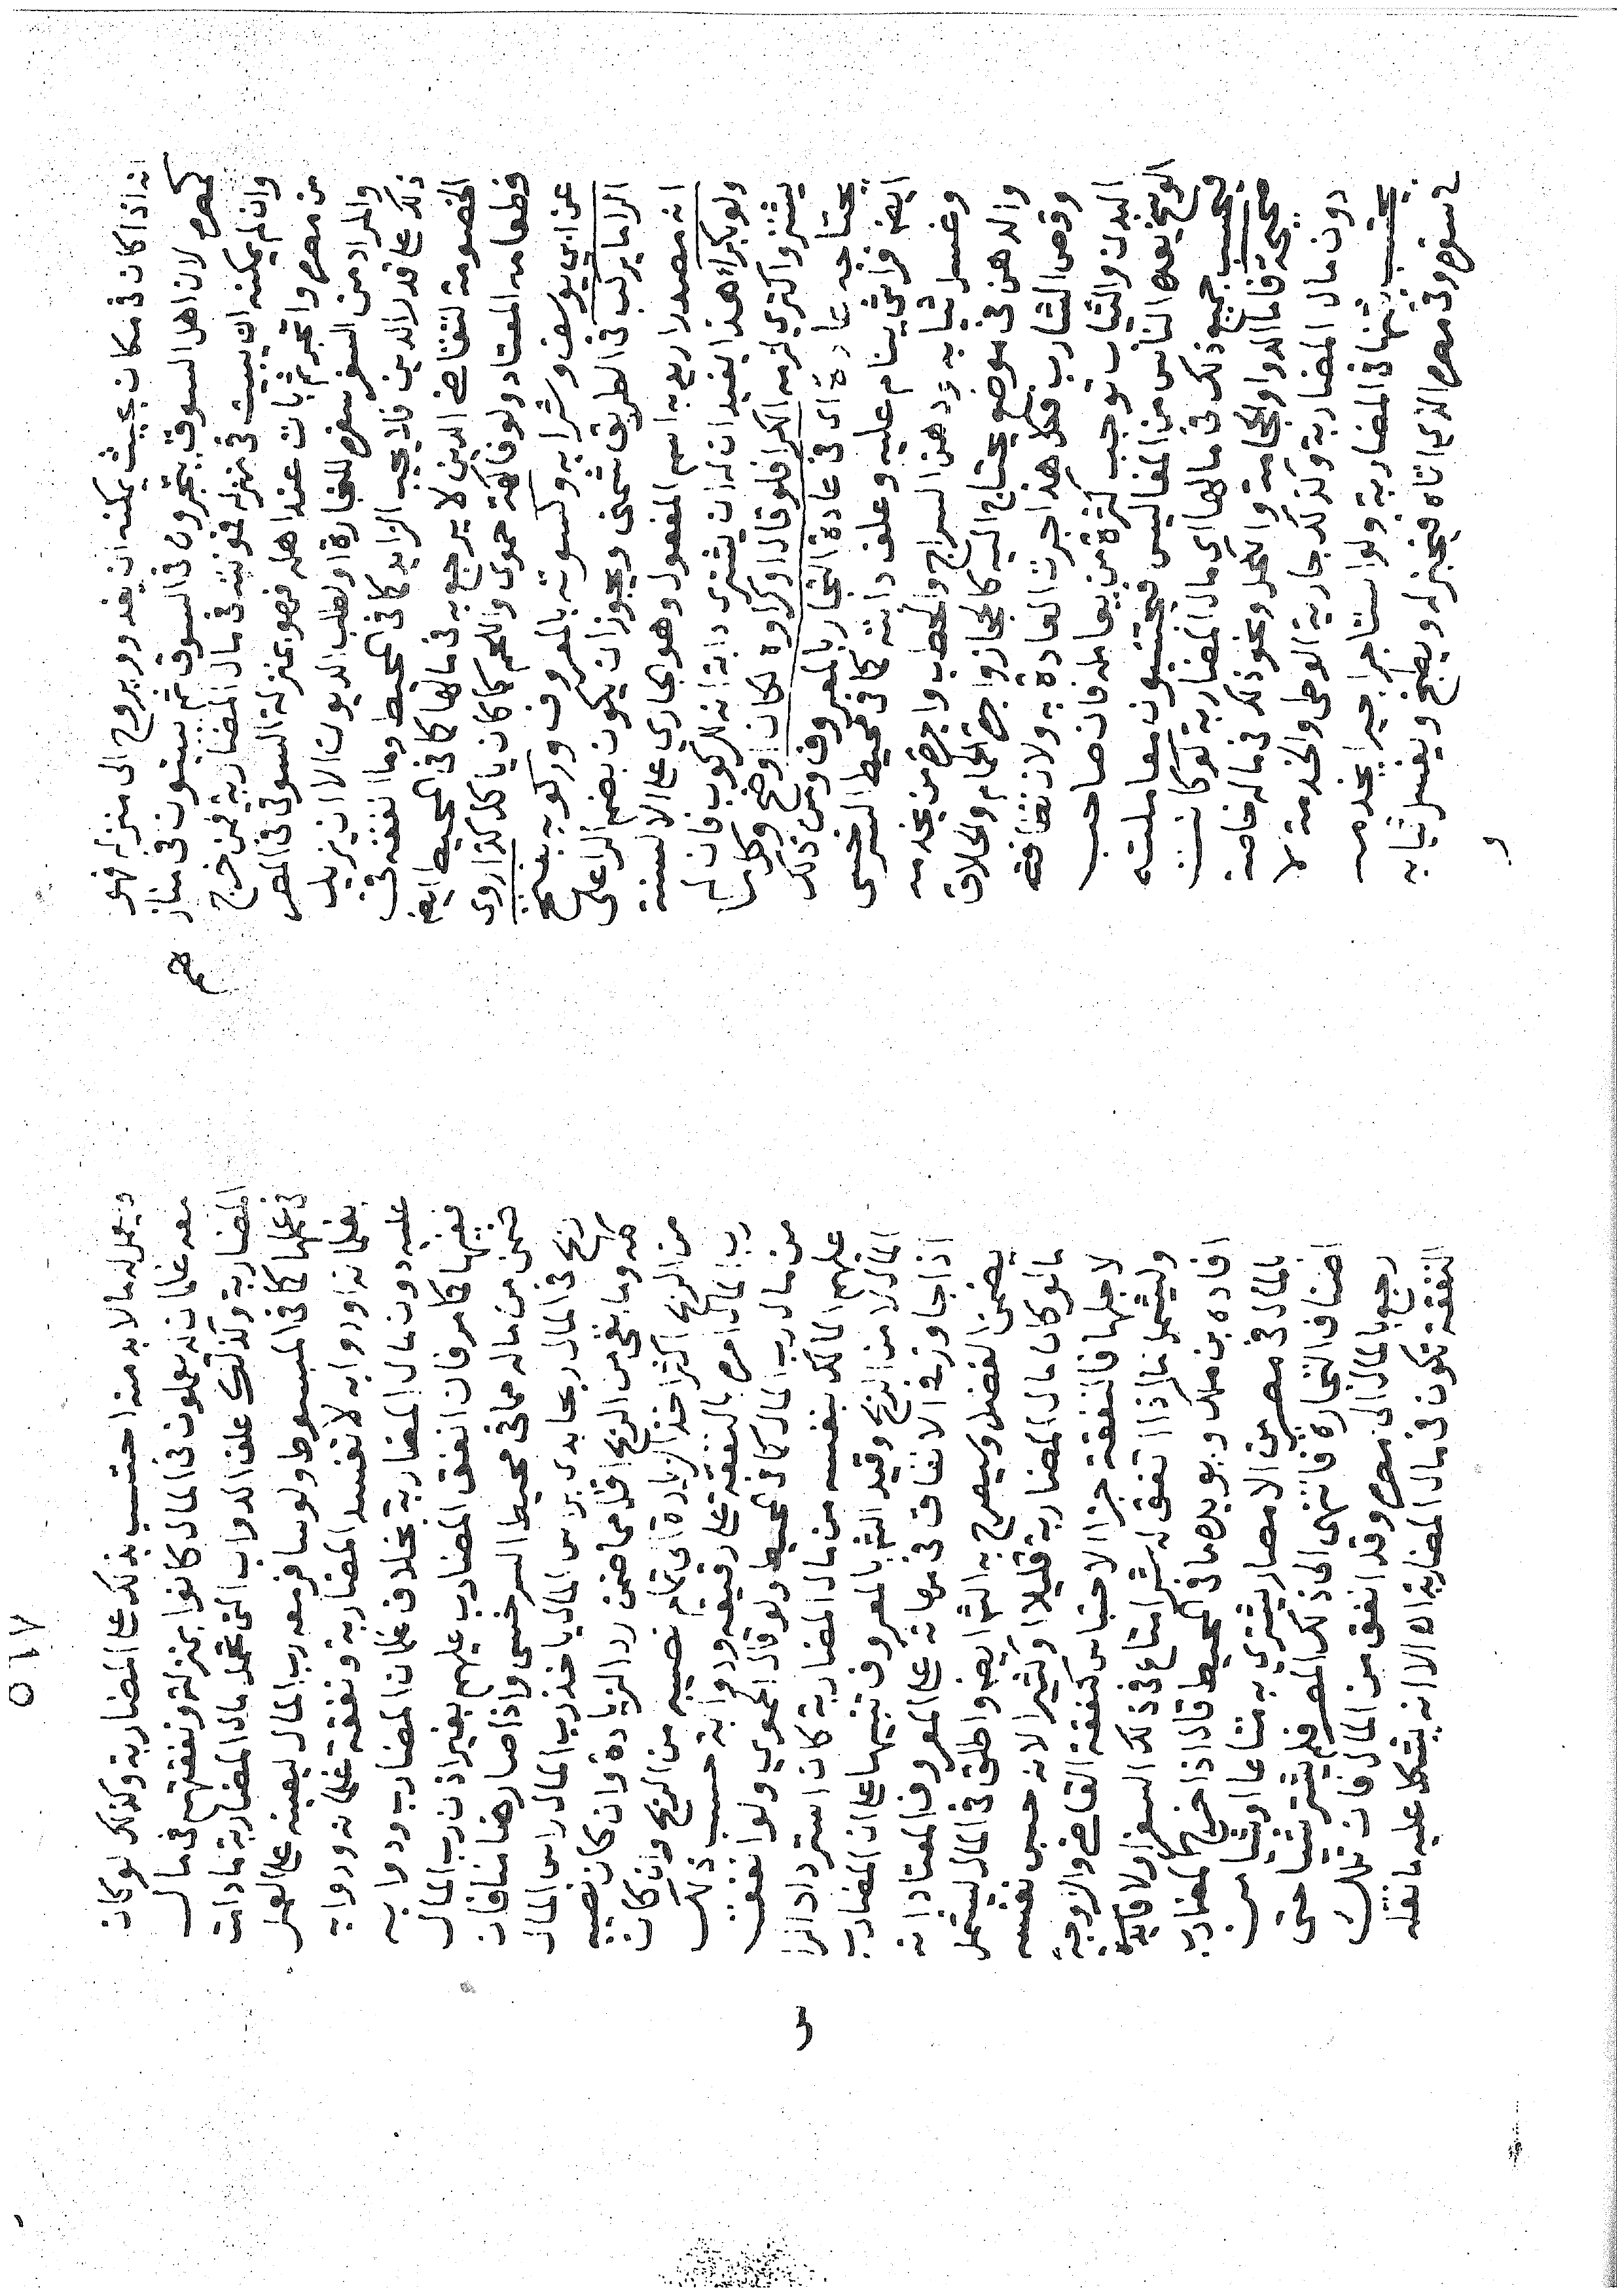 انه اذا كان في مكان بحيث يمكنه ان يغدو ويروح الى منزله فهو
كمصره لان اهل السوق يتجرون في السوق ثم يبيتون في مناز
لهم
وان لم يمكنه ان يبيت في منزله فمونته في مال المضاربة فمن خرج
من مصره واتجر ثم بات عند اهله فهو بمنزلة السوقى في المصر
والمراد من السفر سفره للتجارة او لطلب الديون الا ان يزيد
ذلك على قدر الدين فلا يحسب الزايد كما في المحيط وما انفقه في
الخصومة لتقاضى الدين لا يرجع به في مالها كما في المحيط ايضا
فطعامه المعتاد ولو فاكهة حموى واللحم كما كان ياكل كذا روى
عن ابى يوسف وشرابه وكسوته بالمعروف وركوبه بفتح
الرا ما يركب في الطريق شمنى ويجوز ان يكون بضم الرا على
انه مصدر اريد به اسم المفعول وهو الجارى على الالسنة
ولو بكراء هذا يفيد ان له ان يشترى دابة انه للركوب فان لم
يشتر واكترى لزمه الكرا فلو قال او كراوه لكان اوضح وكل ما
يحتاجه عادة اى في عادة التجار بالمعروف ومن ذلك
ايضا فراش ينام عليه وعلف دابته كما في محيط السرخسى
وغسل ثيابه ودهن السراج والحطب واجرة من يخدمه
والدهن في موضع يحتاج اليه كالحجاز واجرة الحمام والحلاق
وقص الشارب فكل هذا جرت العادة به ولان نظافة
البدن والثياب توجب كثرة من يعامله فان صاحب
الوسخ يعده الناس من المفاليس فيجتنبون معاملته
فيحسب جميع ذلك في مالها اى مال المضاربة لو كانت
صحيحة فاما الدوا والحجامة والكحل ونحو ذلك في ماله خاصة
دون مال المضاربة وكذلك جارية الوطى والخدمة لا
يحتسب بثمنها في المضاربة ولو استاجر اجيرا يخدمه
في سفره وفي مصره الذي اتاه فيخبز له ويطبخ ويغسل ثيابه
و
ويعمل له ما لا بد منه احتسب بذلك على المضاربة وكذلك لو كان
معه غلمان له يعملون في المال كانوا بمنزلته ونفقتهم في مال
المضاربة وكذلك علف الدواب التى تحمل مال المضاربة ما دامت
في عملها كما في المبسوط ولو سافر معه رب المال ليعينه على العمل
بغلمانه او دوابه لا تفسد المضاربة ونفقة غلمانه ودوابه
عليه دون مال المضاربة بخلاف غلمان المضارب ودوابه
ففيها كما مر فان انفق المضارب عليهم بغير اذن رب المال
ضمن من ماله كما في محيط السرخسى واذا صار ضامنا فان
ربح في المال ربحا بدى براس المال ياخذ رب المال راس المال
كله وما بقى من الربح اقل مما ضمن رد الزيادة وان كان نصيبه
من الربح اكثر اخذ الزيادة الى تمام نصيبه من الربح وان كان
رب المال امره بالنفقة على رقيقه ودوابه حسب ذلك
من مال رب المال كما في المحيط ولو قال الحموي ولو انفق
عليهم المالك بنفسه من مال المضاربة كان استردادا لرا
المال لا من الربح وقيد الثم بالمعروف تنبيها على ان المضارب
اذا جاوز في الانفاق في مهماته على المعروف المعتاد انه
يضمن الفضل وسيصرح به الثم ايضا واطلق في المال ليشمل
ما لو كان مال المضاربة قليلا او كثيرا لانه حبس نفسه
لاجلها فالنفقة جزا الاحتباس كنفقة القاضى والزوجة
وليشمل ما اذا اتفق له شرا متاع في ذلك السفر او لا فايدة
افاده بن ملك ويويده ما في المحيط قال اذا خرج المضارب
بالمال في مصر من الامصار يشتري به متاعا او ثيابا من
اصناف التجارة فانتهى الى ذلك المصر فلم يشتر شيا حتى
رجع بالمال الى مصره وقد انفق من المال فان تلك
النفقة تكون في مال المضاربة اه الا انه يشكل عليه ما نقله
س